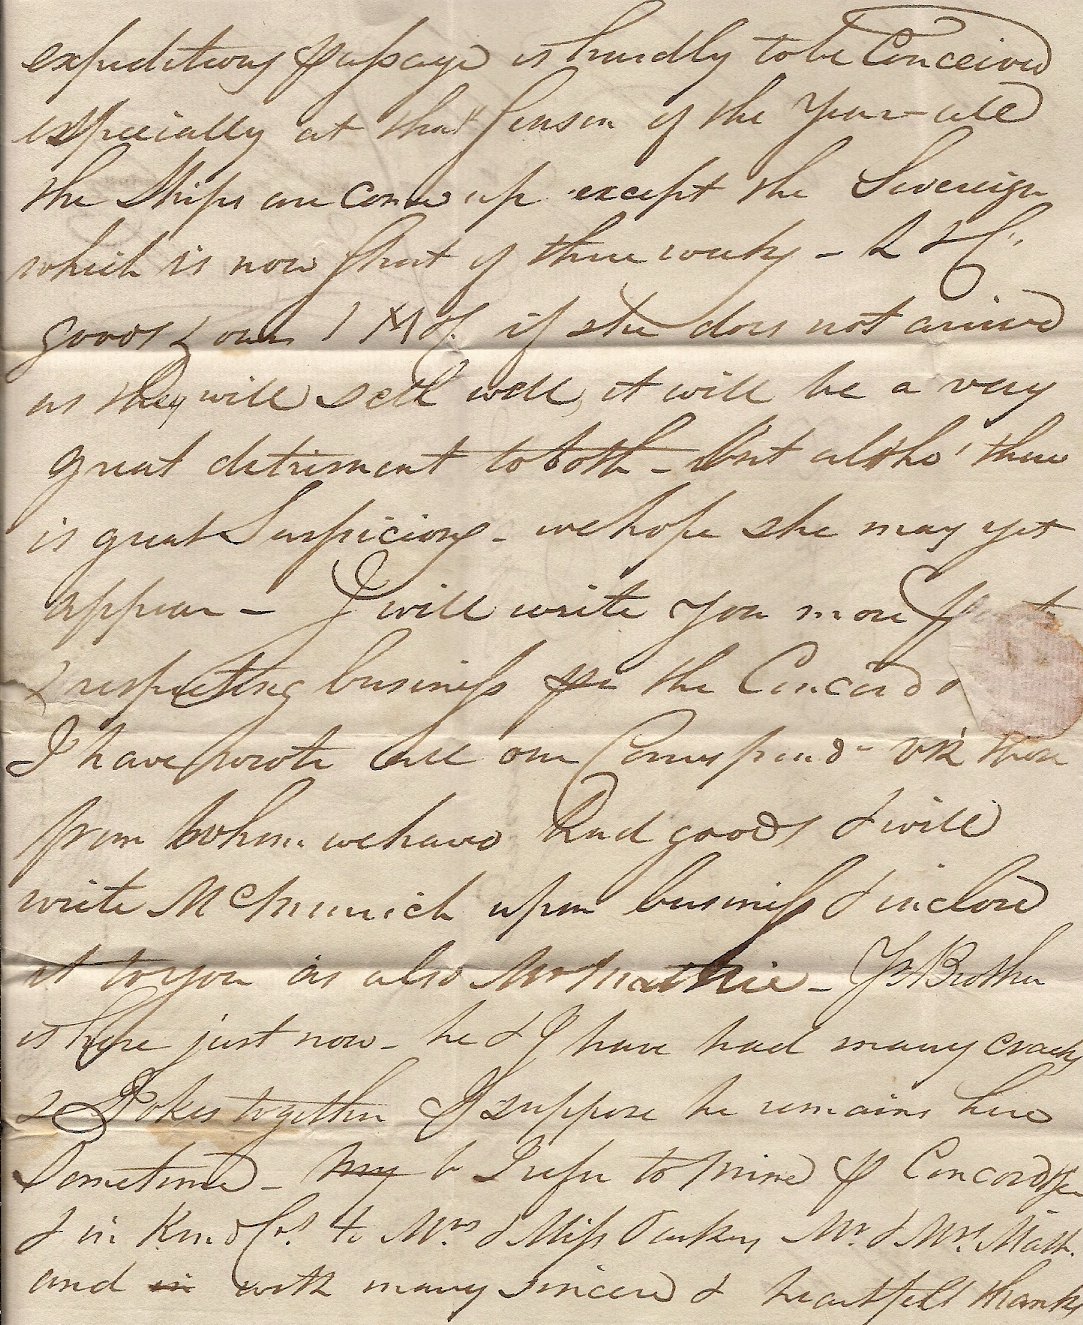 expeditious passage is hardly to be Conceived
especially at that Season of the Year – all
the Ships are come up except the Sovereign
which is now short of three weeks –
goods & ours if she does not arrive
as they will sell well, it will be a very
great detriment to both – but altho' there
is great Suspicions – we hope she may yet
appear – I will write you more
respecting business the Concord &
I have wrote all our Correspond viz those
from whom we have had goods & will
write upon business & inclose
it to you as also Mr Mathie – Yr Brother
is here just now – he & I have had many cracks
& Jokes together & I suppose he remains here
Sometime – my I refer to mine Concord
& in Kind to Mrs & Miss Mr. & Mrs. Math.
and in with many sincere & heartfelt thanks